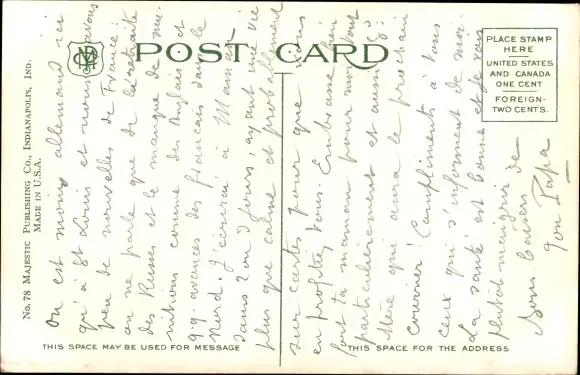 POST CARD
PLACE STAMP
HERE
UNITED STATES
AND CANADA
ONE CENT
FOREIGN-
TWO CENTS.
No. 78 MAJESTIC PUBLISHING CO., INDIANAPOLIS, IND.
MADE IN U.S.A.
On est moins allemand ici
qu'à St Louis et nous avons
peu de nouvelles de France:
on ne parle que de la retraite
des Russes et le manque de mu-
nitions comme des Anglais et
qq avances des français dans le
Nord. J'écrirai à Maman
dans 2 ou 3 jours, ayant une vie
plus que calme et probablement
sur cartes pour que vous
en profitez, tous. Embrasse bien
fort ta maman pour moi tout
particulièrement et aussi
Mère qui aura le prochain
courrier! Compliments à tous
ceux qui s'informent de moi.
La santé est bonne et je vais
plutôt maigrir
Bons baisers de
ton Papa
THIS SPACE MAY BE USED FOR MESSAGE
THIS SPACE FOR THE ADDRESS